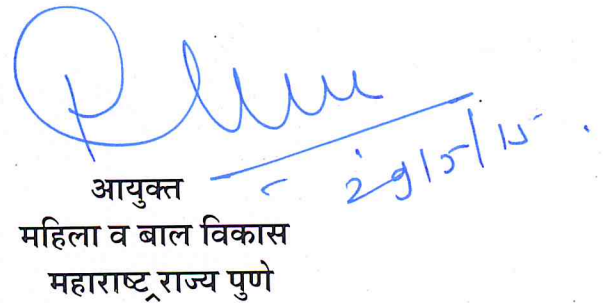 29/5/15
आयुक्त
महिला व बाल विकास
महाराष्ट्र राज्य पुणे